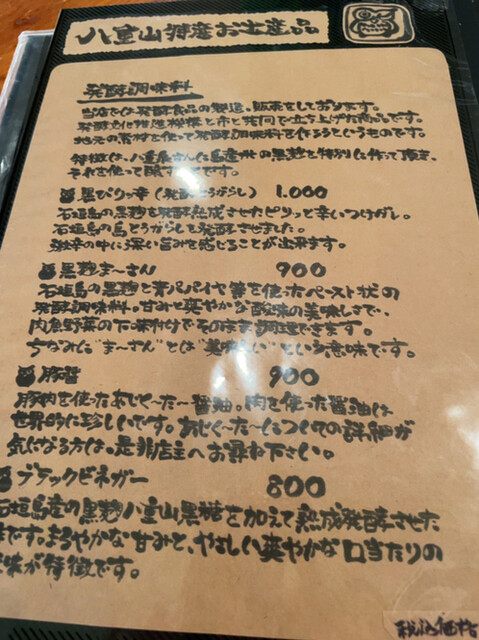 八重山特産お土産品
発酵調味料
当店では発酵食品の製造、販売をしております。
発酵文化推進機構と市と共同で立ち上げた商品です。
地元の素材を使って発酵調味料を作ろうというものです。
特徴は、八重泉さんに島産米の黒麹を特別に作って頂き、
それを使って醸す事です。
黒ぴりっ辛（発酵とうがらし） 1.000
石垣島の黒麹を発酵熟成させたピリッと辛いつけだし。
石垣島の島とうがらしを発酵させました。
激辛の中に深い旨みを感じることが出来ます。
黒麹ま～さん 900
石垣島の黒麹と青パパイヤ等を使ったペースト状の
発酵調味料。甘みと爽やかな酸味の美味しさで、
肉魚野菜の下味付けでそのまま調理できます。
ちなみに"ま～さん"とは"美味しい"という意味です。
豚醤 900
豚肉を使ったあじくーたー醤油。肉を使った醤油は
世界的に珍しいです。あじくーたーについての詳細が
気になる方は、是非店主へお尋ね下さい。
ブラックビネガー 800
石垣島産の黒麹八重山黒糖を加えて熟成発酵させた
です。まろやかな甘みと、やさしい爽やかな口当たりの
味が特徴です。
税込価格